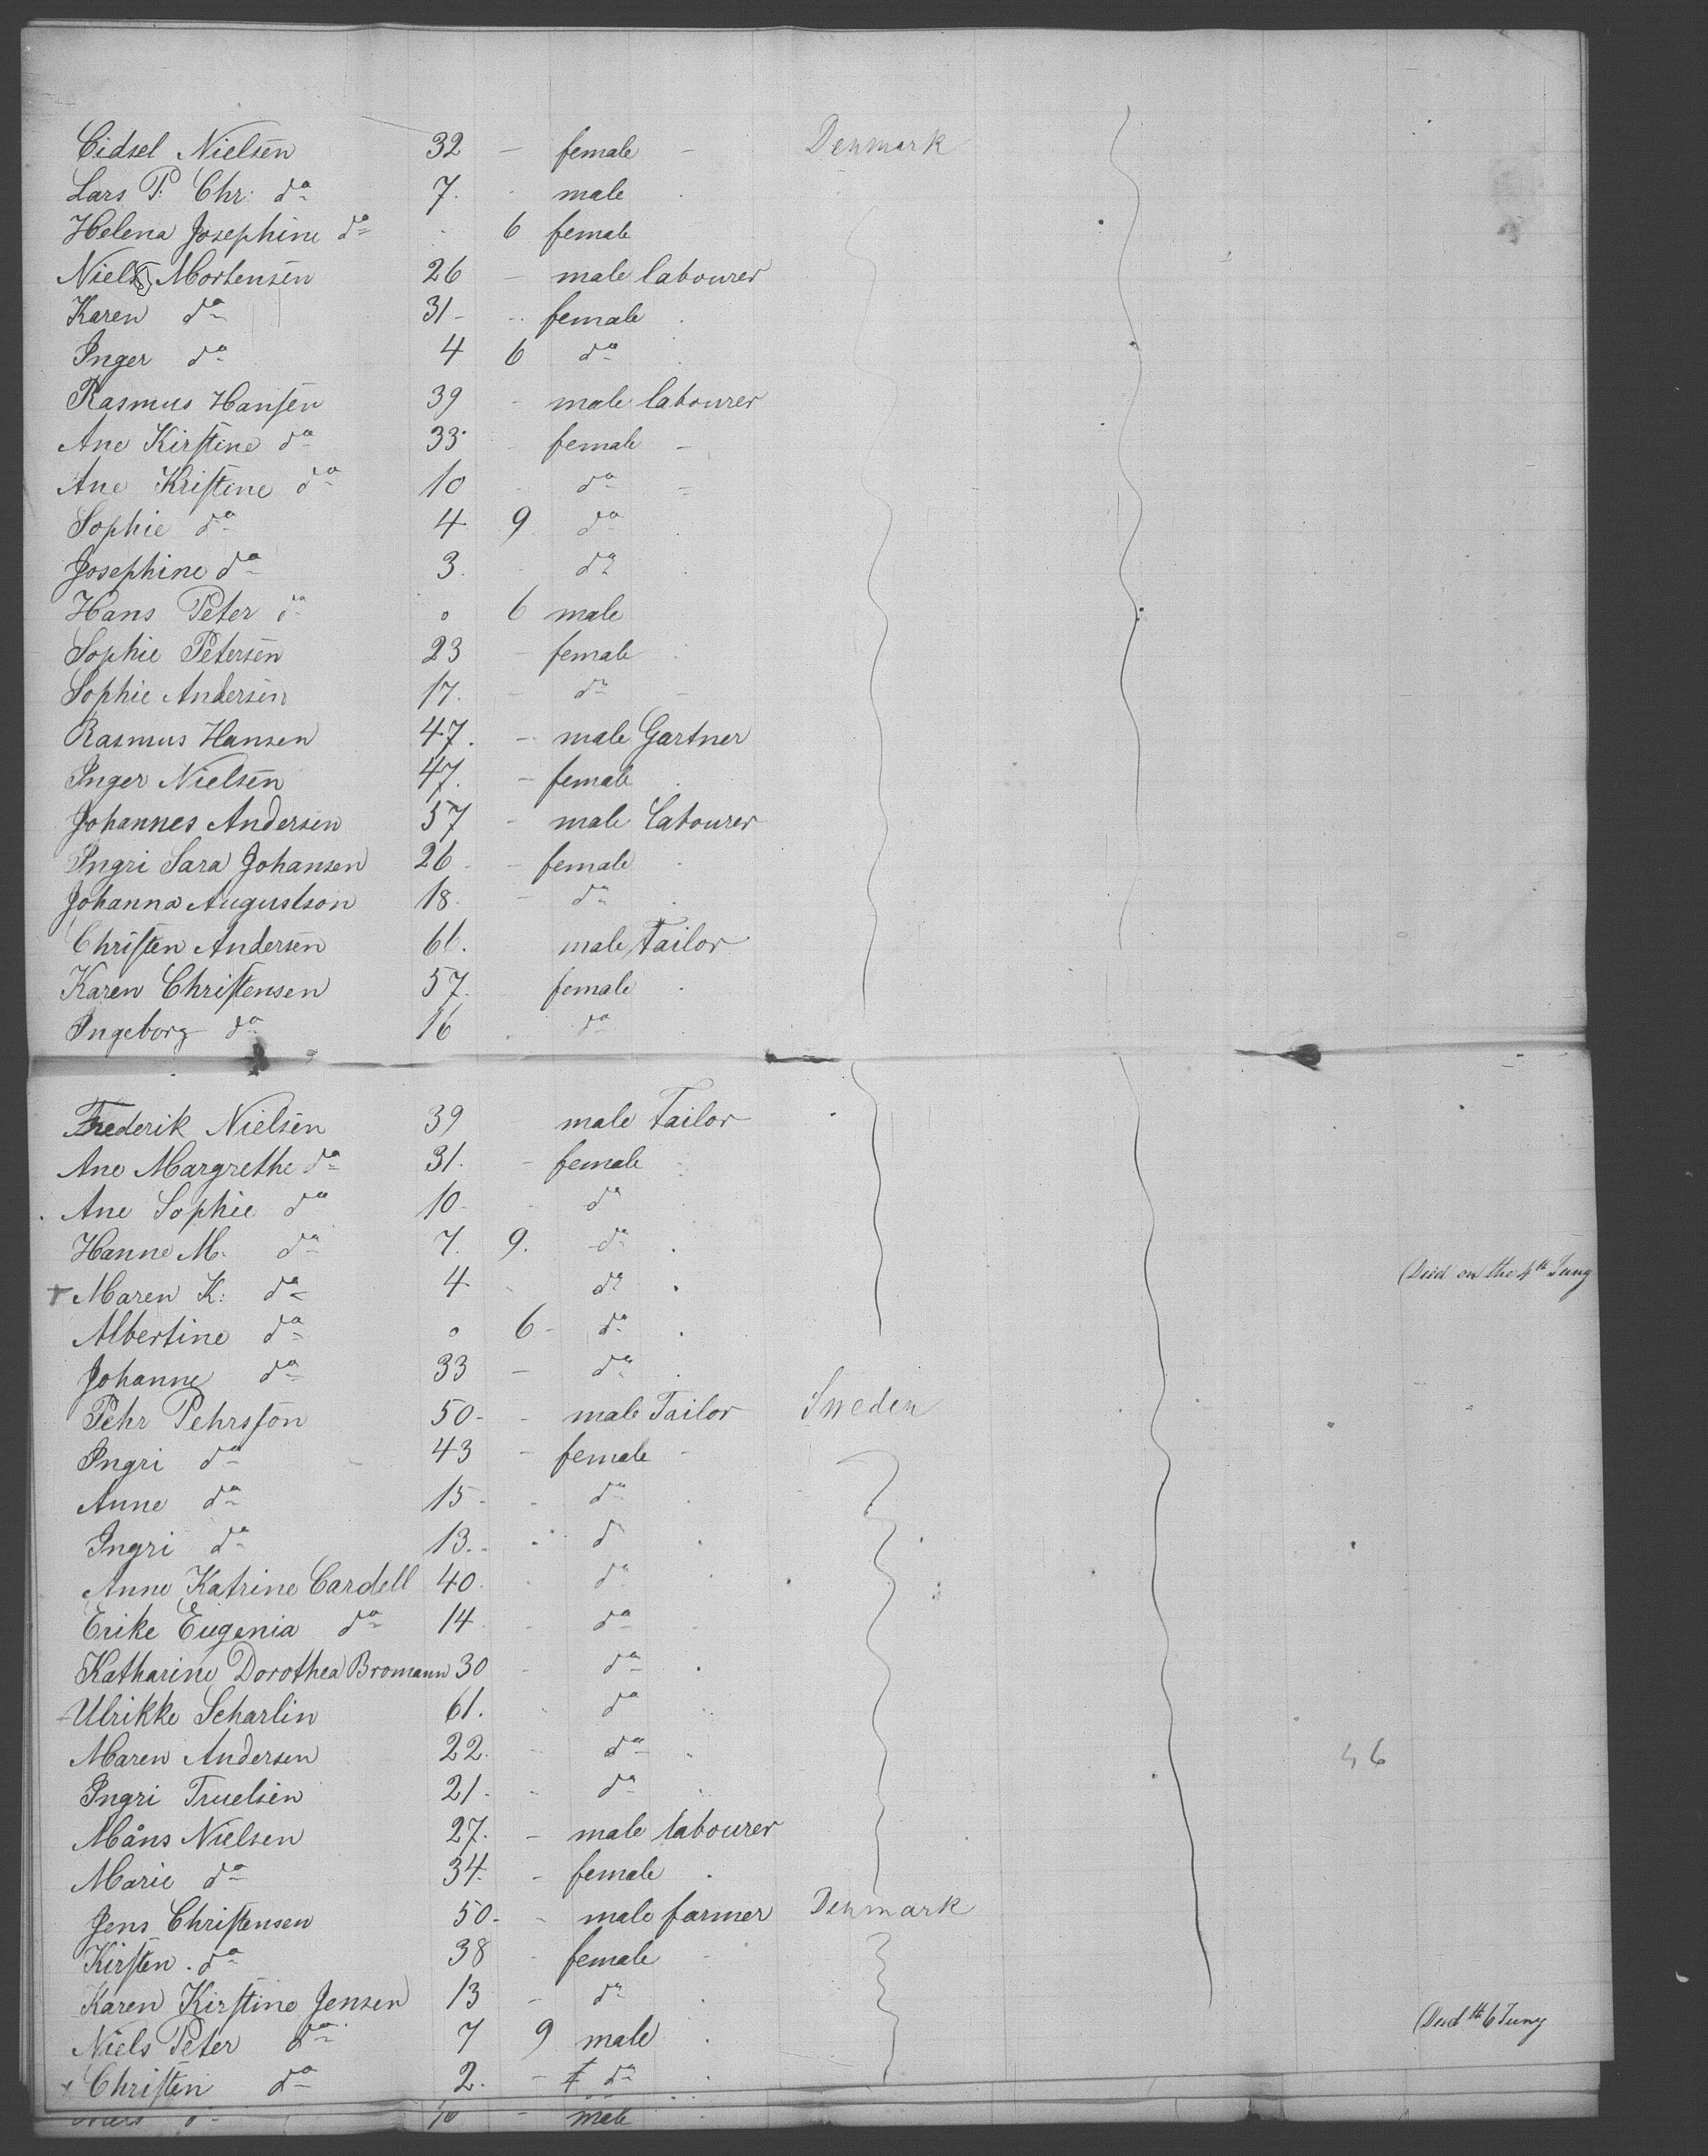 Cidsel Nielsen 32 - female - Denmark
Lars P. Chr: do 7. - male
Helena Josephine do - 6 female
Niels Mortensen 26 - male labourer
Karen do 31 - female
Inger do 4 6 do
Rasmus Hansen 39 - male labourer
Ane Kirstine do 33 - female -
Ane Kristine do 10 do
Sophie do 4 9 do
Josephine do 3. do
Hans Peter do 0 6 male
Sophie Petersen 23 - female
Sophie Andersen 17. - do
Rasmus Hansen 47. - male Gartner
Inger Nielsen 47. - female
Johannes Andersen 57 - male labourer
Ingri Sara Johansen 26 - female
Johanna Augustson 18. - do
Christen Andersen 66. male Tailor
Karen Christensen 57. female
Ingeborg do 16 do
Frederik Nielsen 39 male Tailor
Ane Margrethe do 31. - female
Ane Sophie do 10. do
Hanne M. do 7. 9. do
+ Maren K: do 4 - do (Died on the 4th Juny
Albertine do 0 6 - do
Johanne do 33 - do
Pehr Pehrsson 50 - male Tailor Sweden
Ingri do 43 - female -
Anne do 15 - do
Ingri do 13. - do
Anne Katrine Cardell 40. do
Erike Eugenia do 14 - do
Katharine Dorothea Bromann 30 - do
Ulrikke Scharlin 61. do
Maren Andersen 22. - do 46
Ingri Truelsen 21 - do
Måns Nielsen 27. - male labourer
Marie do 34. - female
Jens Christensen 50 - male farmer Denmark
Kirsten do 38 - female
Karen Kirstine Jensen 13 - do
Niels Peter do 7 9 male (Died th 6 Juny
+ Christen do 2. - do
male